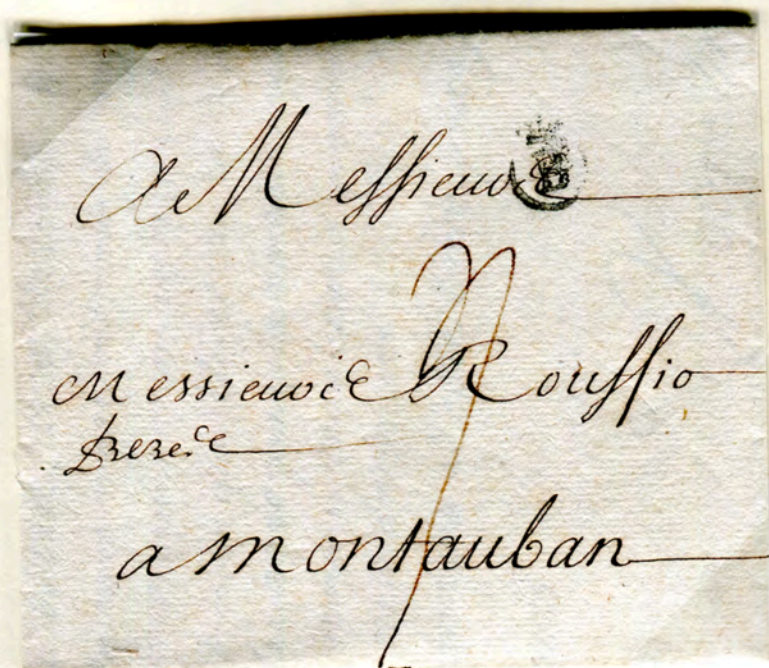 A Messieurs
Messieurs Roussio
freres
a montauban